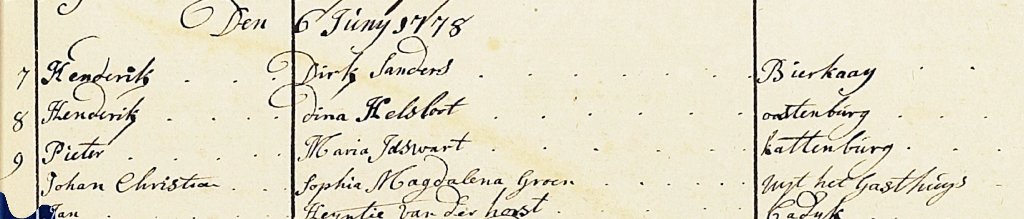 Den 6 Juny 1778
7 Henderik . . . . Dirk Sanders . . . . . . . Bierkaay . .
8 Henderik . . . . dina Helsloot . . . . . . oostenburg . . .
9 Pieter . . . . . Maria Idswart . . . . . . kattenburg . . .
Johan Christiaa . . Sophia Magdalena Groen . . . . uyt het Gasthuys .
Jan . . . . Heyntie van der horst . . . . . Cadyk . . .